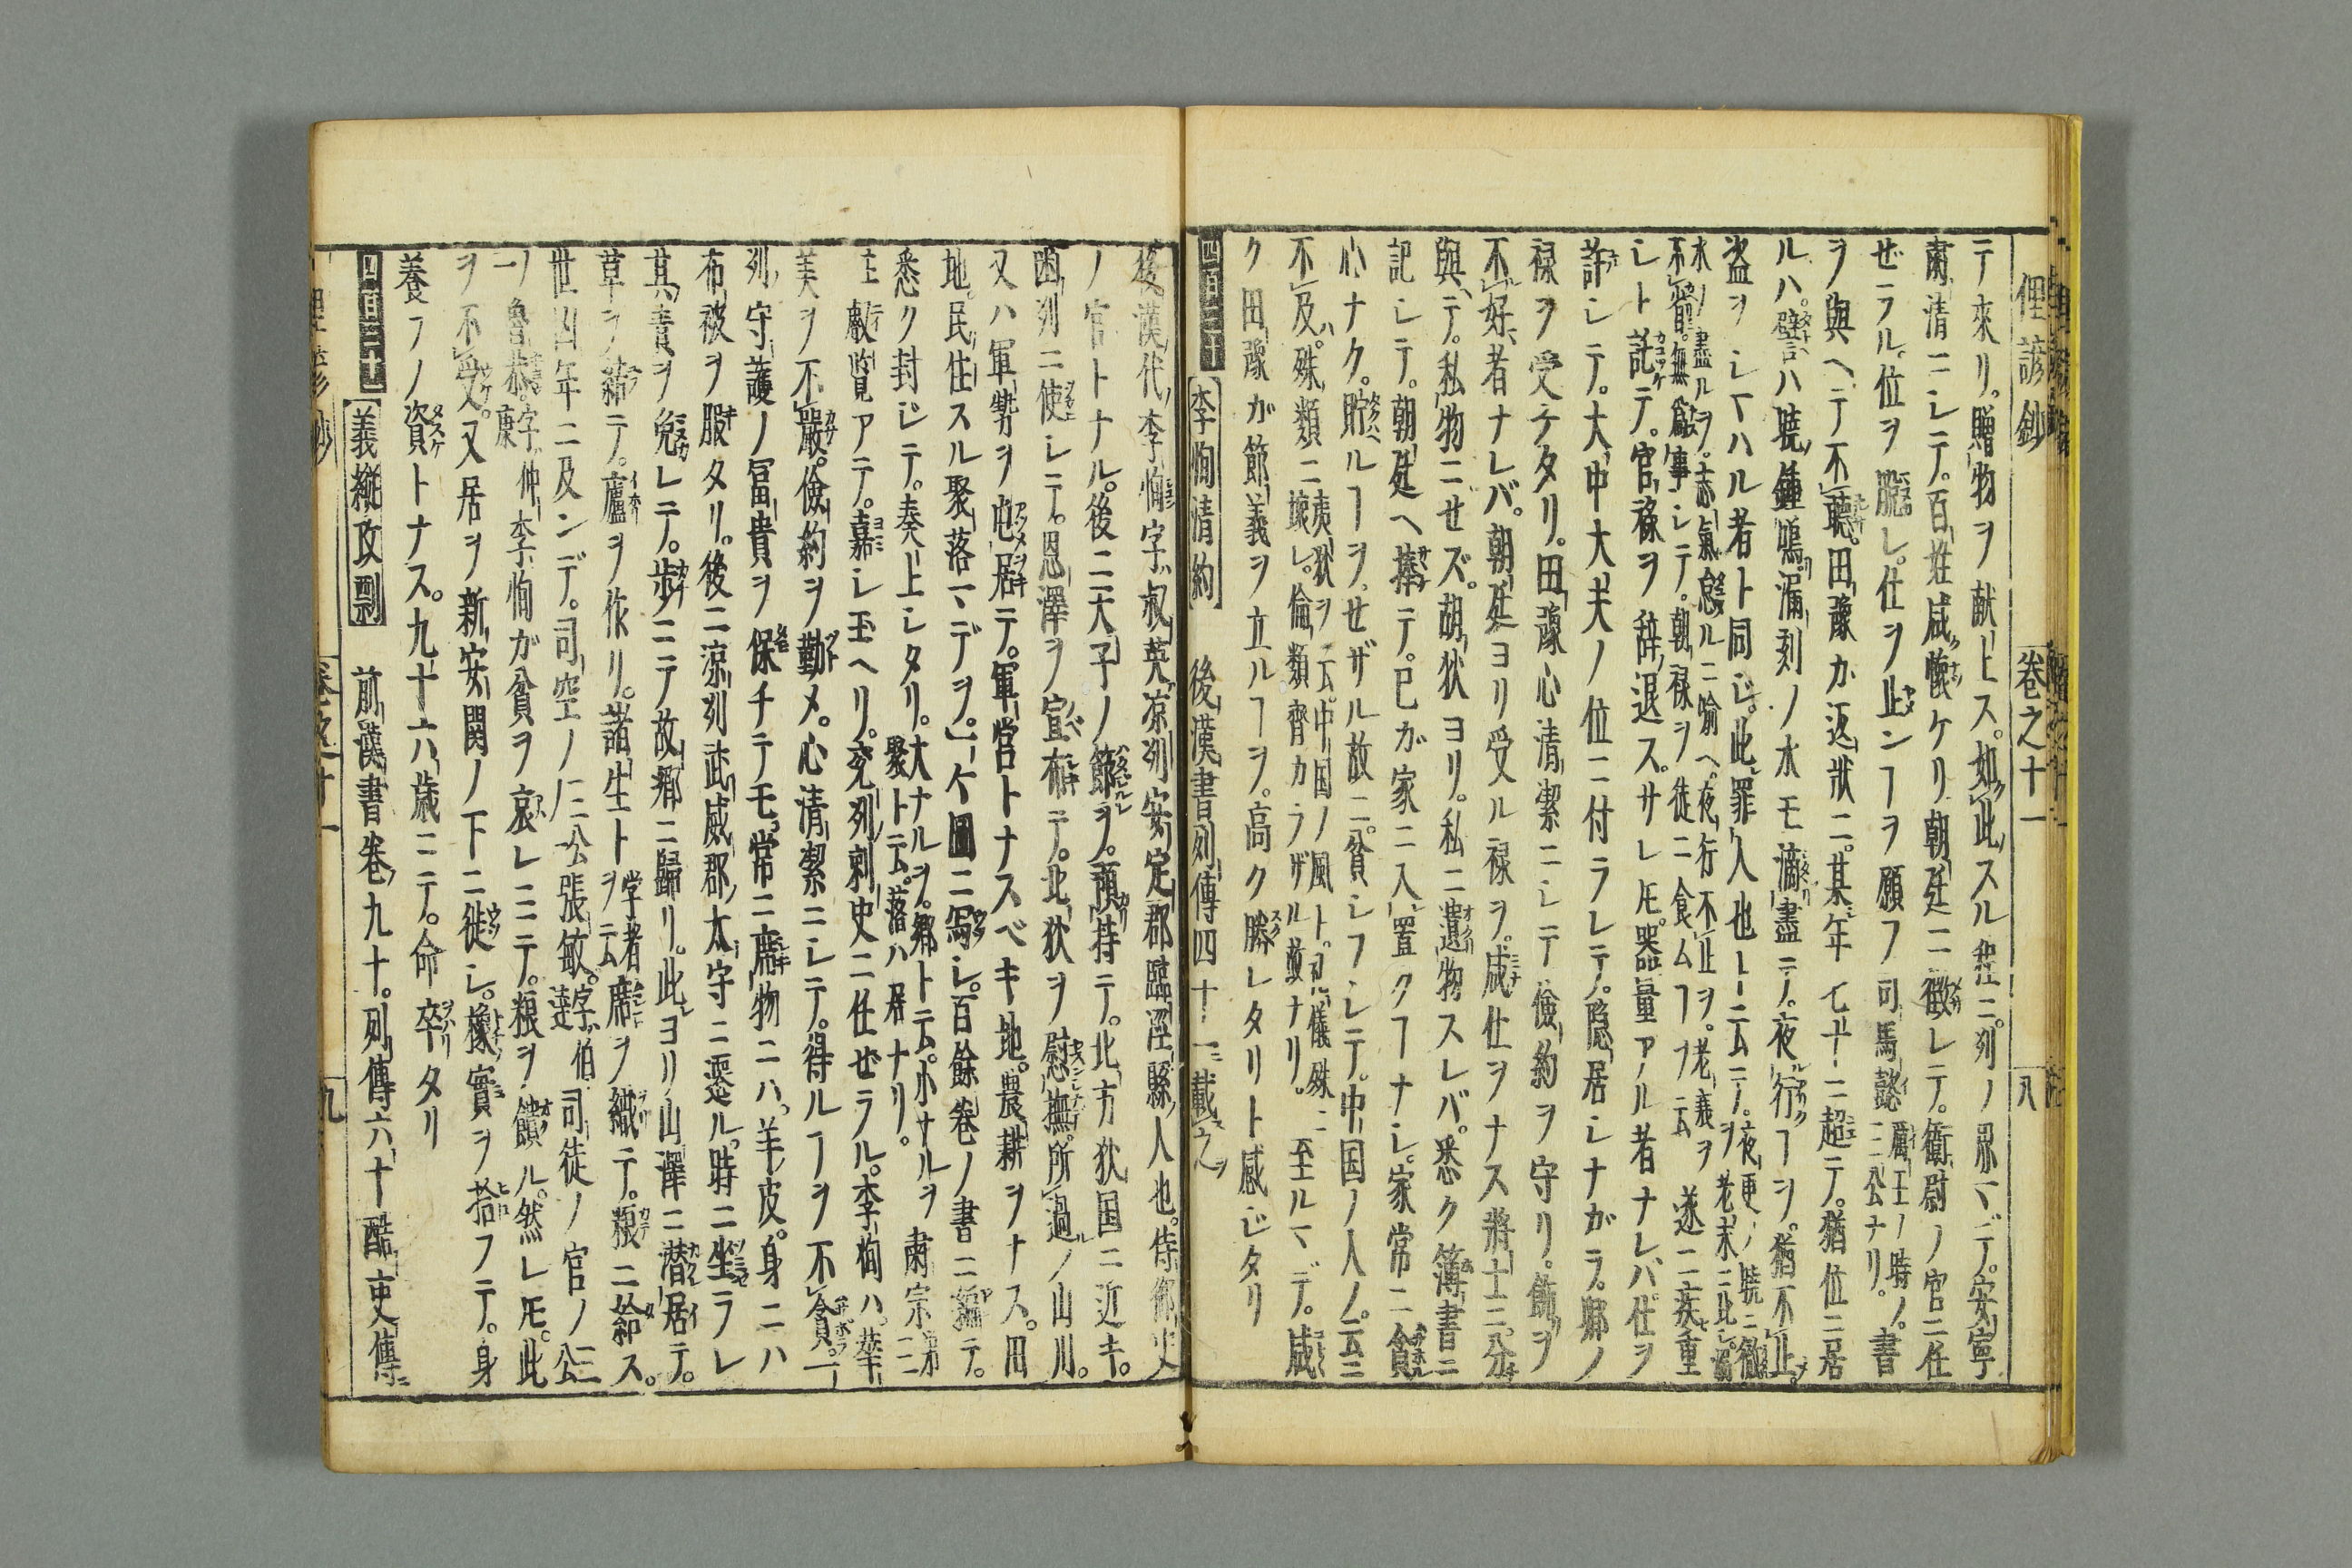 俚諺鈔 卷之十一 八
テ來リ。贈物ヲ献上ス。如此スル程ニ。列ノ界マデ。安寧
肅清ニシテ。百姓咸懐ケリ朝廷ニ徴レテ。衞尉ノ官ニ任
ゼラル。位ヲ 。仕ヲ止ンヿヲ願フ司馬懿 厲王ノ時ノ。三公ナリ。書
ヲ與ヘテ不聽。田豫カ返狀ニ。某年七十ニ超テ。猶位ニ居
ルハ。譬ハ曉鍾鳴漏刻ノ水モ滴盡テ。夜行ヿヲ。猶不止。
盗ヲシマハル者ト同ジ。此罪人也ト云テ。夜更ノ曉ニ
水ノ盡ルヲ。 ルニ喩ヘ。夜行不止ヲ。老衰ヲ 遂ニ疾重
シト託テ。官祿ヲ辞退ス。サレ𪜈。器量アル者ナレバ。仕ヲ
許シテ。大中大夫ノ位ニ付ラレテ。隠居シナガラ。郷ノ
祿ヲ受ケタリ。田豫心清潔ニシテ儉約ヲ守リ。飾ヲ
不好者ナレバ。朝廷ヨリ受ル禄ヲ。咸仕ヲナス將士ニ。分
與テ。私物ニセズ。胡狄ヨリ。私ニ遺物スレバ。悉ク簿書ニ
記シテ。朝廷ヘ捧テ。己が家ニ入置クヿナシ。家常ニ貧
心ナク。貯ルヿヲ。セザル故ニ。貧シフシテ。中国ノ人ノ。云ニ
不及。殊類ニ 夷狄ヲ云。中国ノ風ト。礼儀殊ニ 至ルマデ。咸
ク田豫が節義ヲ立ルヿヲ。高ク勝レタリト感ジタリ
四百三十 李恂清約 後漢書列傳四十一ニ載之
後漢代李恂字叔英凉列安定郡臨涇縣人也。侍御史
ノ官トナル。後ニ大子ノ節ヲ。預持テ。北方狄国ニ近キ。
幽列ニ使シテ。恩澤ヲ宣布テ。北狄ヲ慰撫。所過ノ山川。
又ハ軍勢ヲ屯居テ。軍営トナスベキ地。農耕ヲナス。田
地。民住スル聚落マデヲ。一ケ圖ニ寫シ。百餘卷ノ書ニ編テ。
悉ク封ジテ。奏上シタリ。 大ナルヲ。郷ト云。小サルヲ 聚ト云。落ハ居ナリ。 肅宗ニ
 叡覧アテ。嘉シ玉ヘリ。兖列刺史ニ仕ゼラル。李恂ハ。華
美ヲ不嚴。儉約ヲ勤メ。心清潔ニシテ。得ルヿヲ不貪。一
列守護ノ冨貴ヲ保チテモ。常ニ席物ニハ。羊皮。身ニハ
布被ヲ服タリ。後ニ凉列武威郡太守ニ遷ル。時ニ坐ラレ
其責ヲ免レテ。歩ニテ故郷ニ歸リ。此ヨリ山澤ニ潜居テ。
草ヲ結テ。廬ヲ作リ。諸生ト 学者ヲ云 席ヲ織テ。粮ニ給ス。
世凶年ニ及ンデ。司空ノ 三公 張敏。字伯達 司徒ノ官ノ 三公ノ一
ノ魯恭。字仲康 李恂が貧ヲ哀レミニテ。粮ヲ饋ル。然レ𪜈。此
ヲ不受。又居ヲ新安関ノ下ニ徙シ。橡實ヲ拾フテ。身
養フノ資トナス。九十六歳ニテ。命卒タリ
四百三十一 義縱攻剽 前漢書卷九十。列傳六十酷吏傳ニ
卷之十一 九